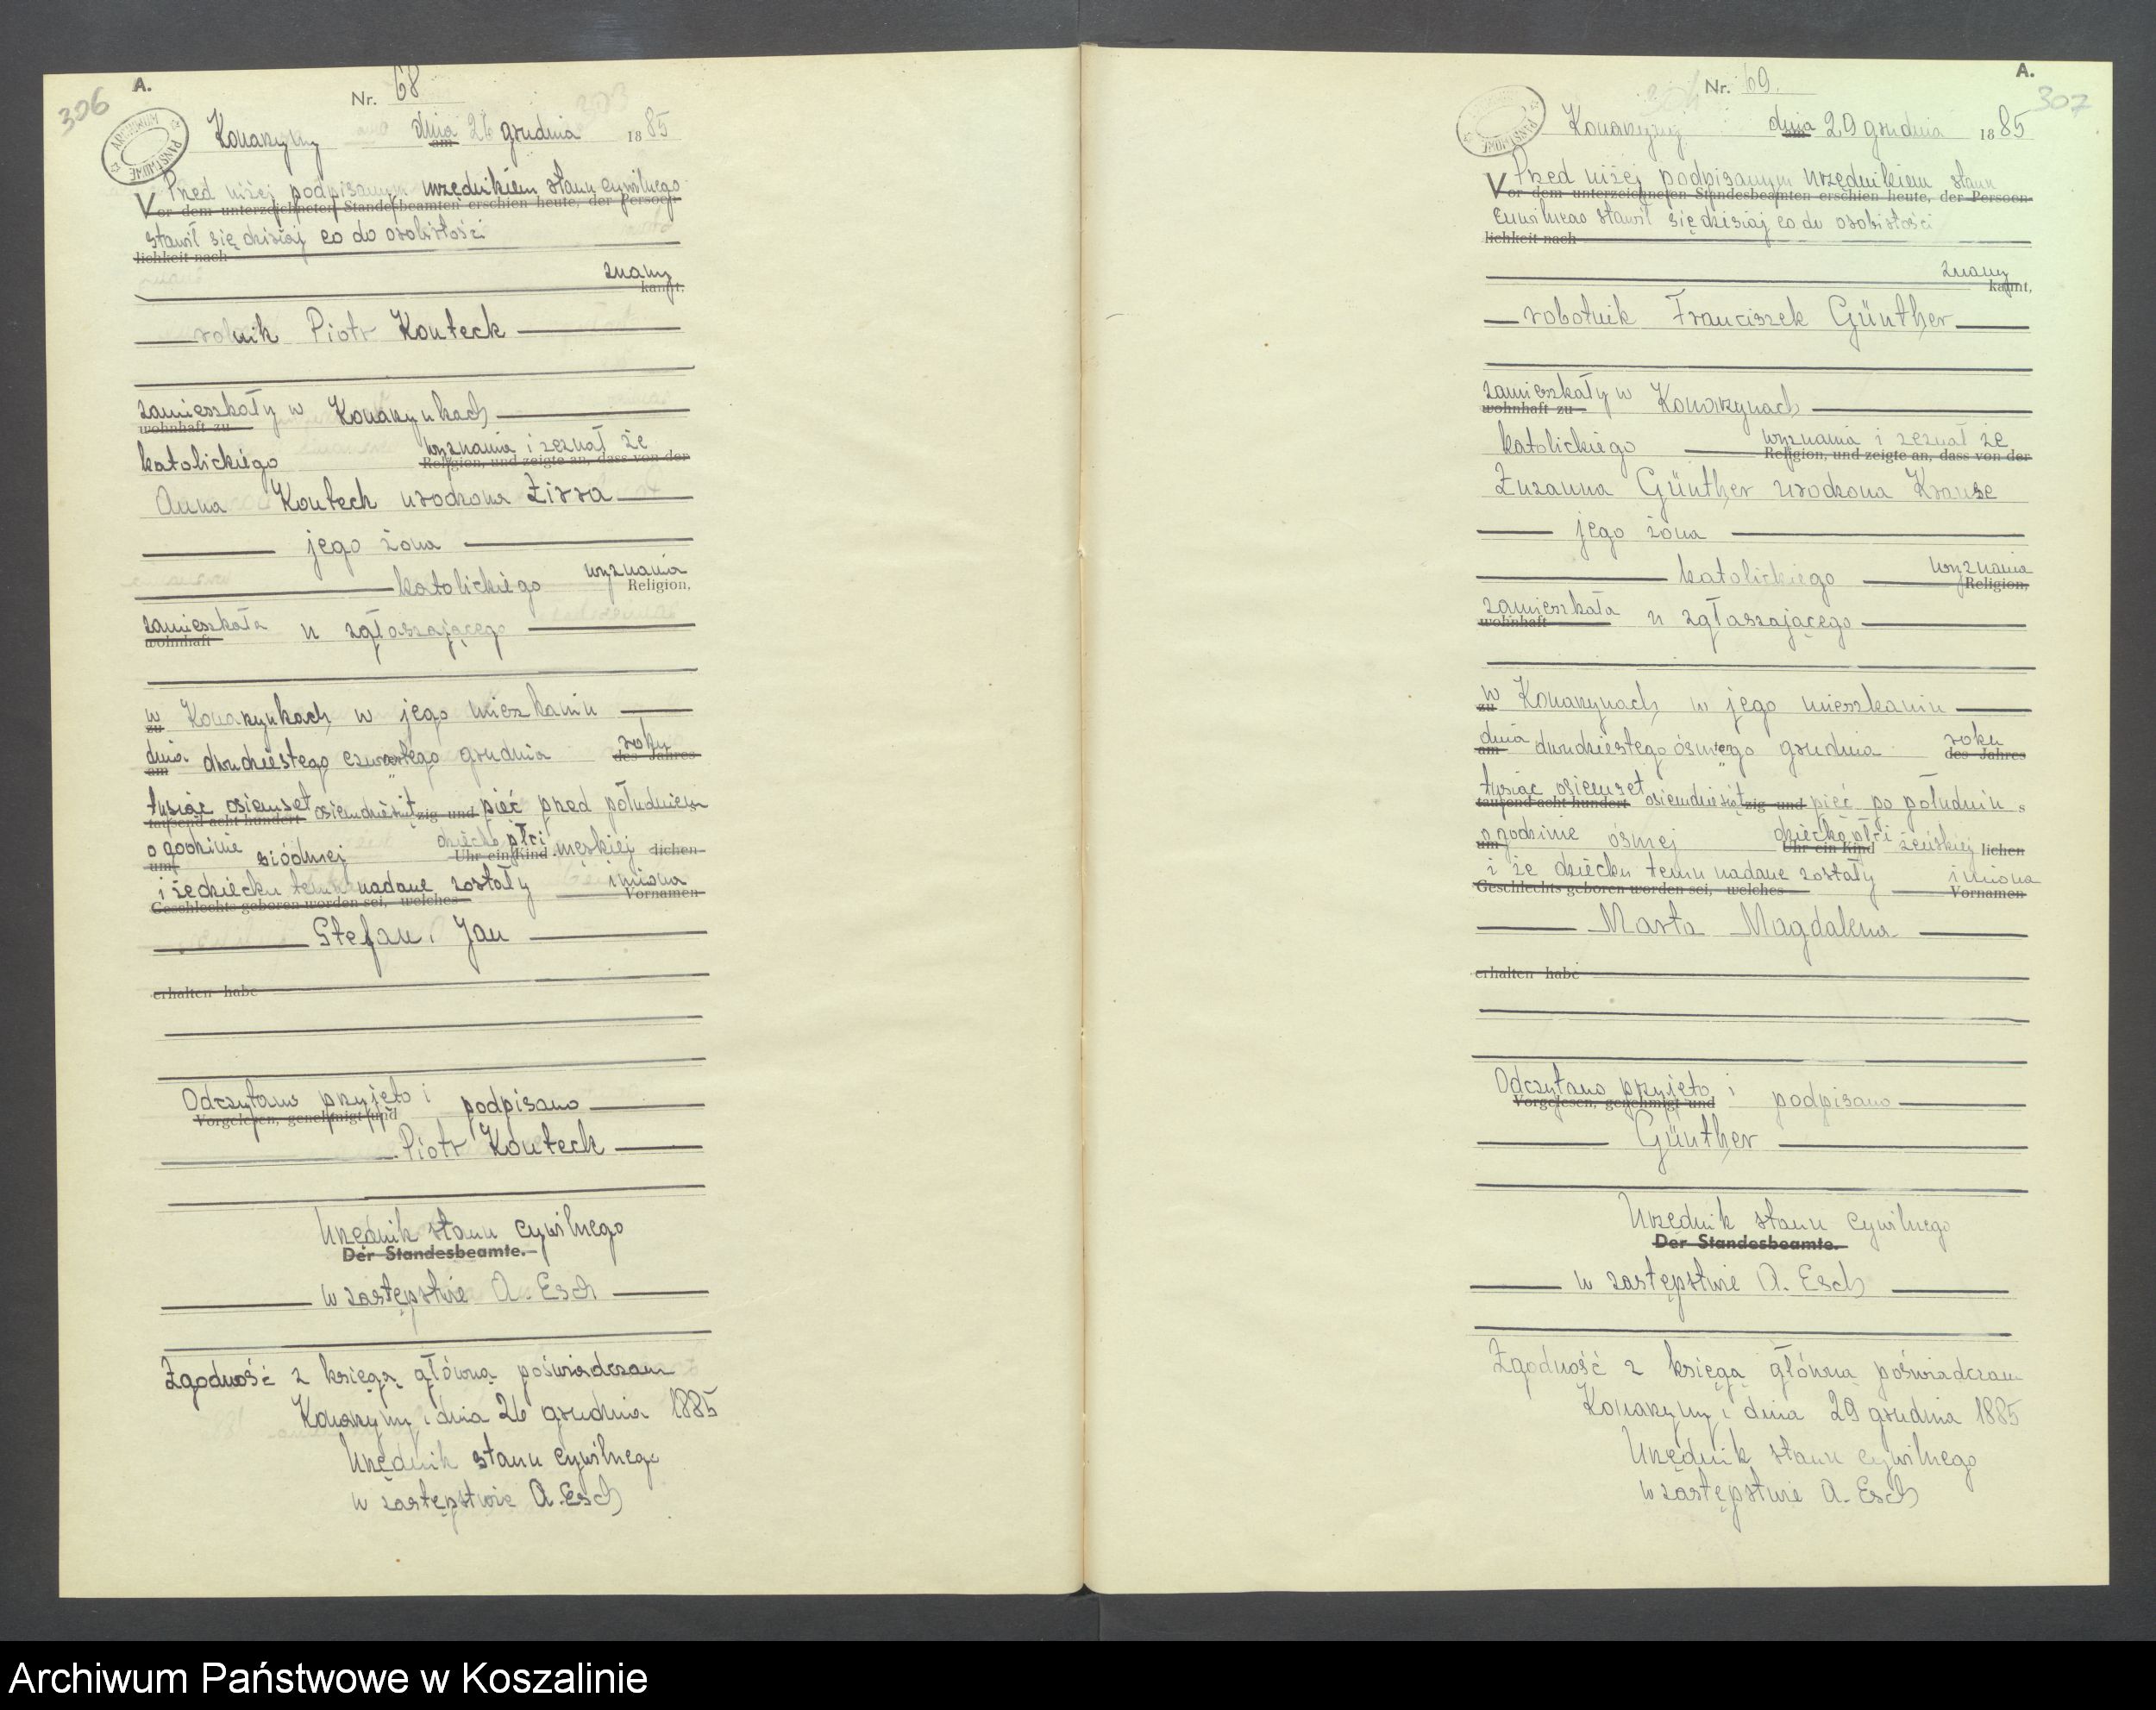 306
A.
Nr. 68
ARCHIWUM PAŃSTWOWE
Konarzyny dnia am 26 grudnia 1885
Przed niżej podpisanym urzędnikiem stanu cywilnego
Vor dem unterzeichneten Standesbeamten erschien heute, der Persoen-
stawił się dzisiaj co do osobistości
lichkeit nach
znany
kannt,
rolnik Piotr Konteck
zamieszkały w Konarzynkach
wohnhaft zu
katolickiego wyznania i zeznał że
Religion, und zeigte an, dass von der
Anna Konteck urodzona Zirra
jego żona
katolickiego wyznania
Religion,
zamieszkała u zgłaszającego
wohnhaft
w Konarzynkach w jego mieszkaniu
zu
dnia dwudziestego czwartego grudnia roku
am des Jahres
tysiąc osiemset osiemdziesiąt pięć przed południem
tausend acht hundert zig und
o godzinie siódmej dziecko płci męskiej
um Uhr ein Kind lichen
i że dziecku temu nadane zostały imiona
Geschlechts geboren worden sei, welches Vornamen
Stefan, Jan
erhalten habe
Odczytano przyjęto i podpisano
Vorgelesen, genehmigt und
Piotr Konteck
Urzędnik stanu cywilnego
Der Standesbeamte.
w zastępstwie A. Esch
Zgodność z księgą główną poświadczam
Konarzyny, dnia 26 grudnia 1885
Urzędnik stanu cywilnego
w zastępstwie A. Esch
A.
307
Nr. 69.
Konarzyny dnia am 29 grudnia 1885
Przed niżej podpisanym urzędnikiem stanu
Vor dem unterzeichneten Standesbeamten erschien heute, der Persoen-
cywilnego stawił się dzisiaj co do osobistości
lichkeit nach
znany
kannt,
robotnik Franciszek Günther
zamieszkały w Konarzynach
wohnhaft zu
katolickiego wyznania i zeznał że
Religion, und zeigte an, dass von der
Zuzanna Günther urodzona Krause
jego żona
katolickiego wyznania
Religion,
zamieszkała u zgłaszającego
wohnhaft
w Konarzynach w jego mieszkaniu
zu
dnia dwudziestego ósmego grudnia roku
am des Jahres
tysiąc osiemset osiemdziesiąt pięć po południu
tausend acht hundert zig und
o godzinie ósmej dziecko płci żeńskiej
um Uhr ein Kind lichen
i że dziecku temu nadane zostały imiona
Geschlechts geboren worden sei, welches Vornamen
Marta Magdalena
erhalten habe
Odczytano przyjęto i podpisano
Vorgelesen, genehmigt und
Günther
Urzędnik stanu cywilnego
Der Standesbeamte.
w zastępstwie A. Esch
Zgodność z księgą główną poświadczam
Konarzyny, dnia 29 grudnia 1885
Urzędnik stanu cywilnego
w zastępstwie A. Esch
Archiwum Państwowe w Koszalinie